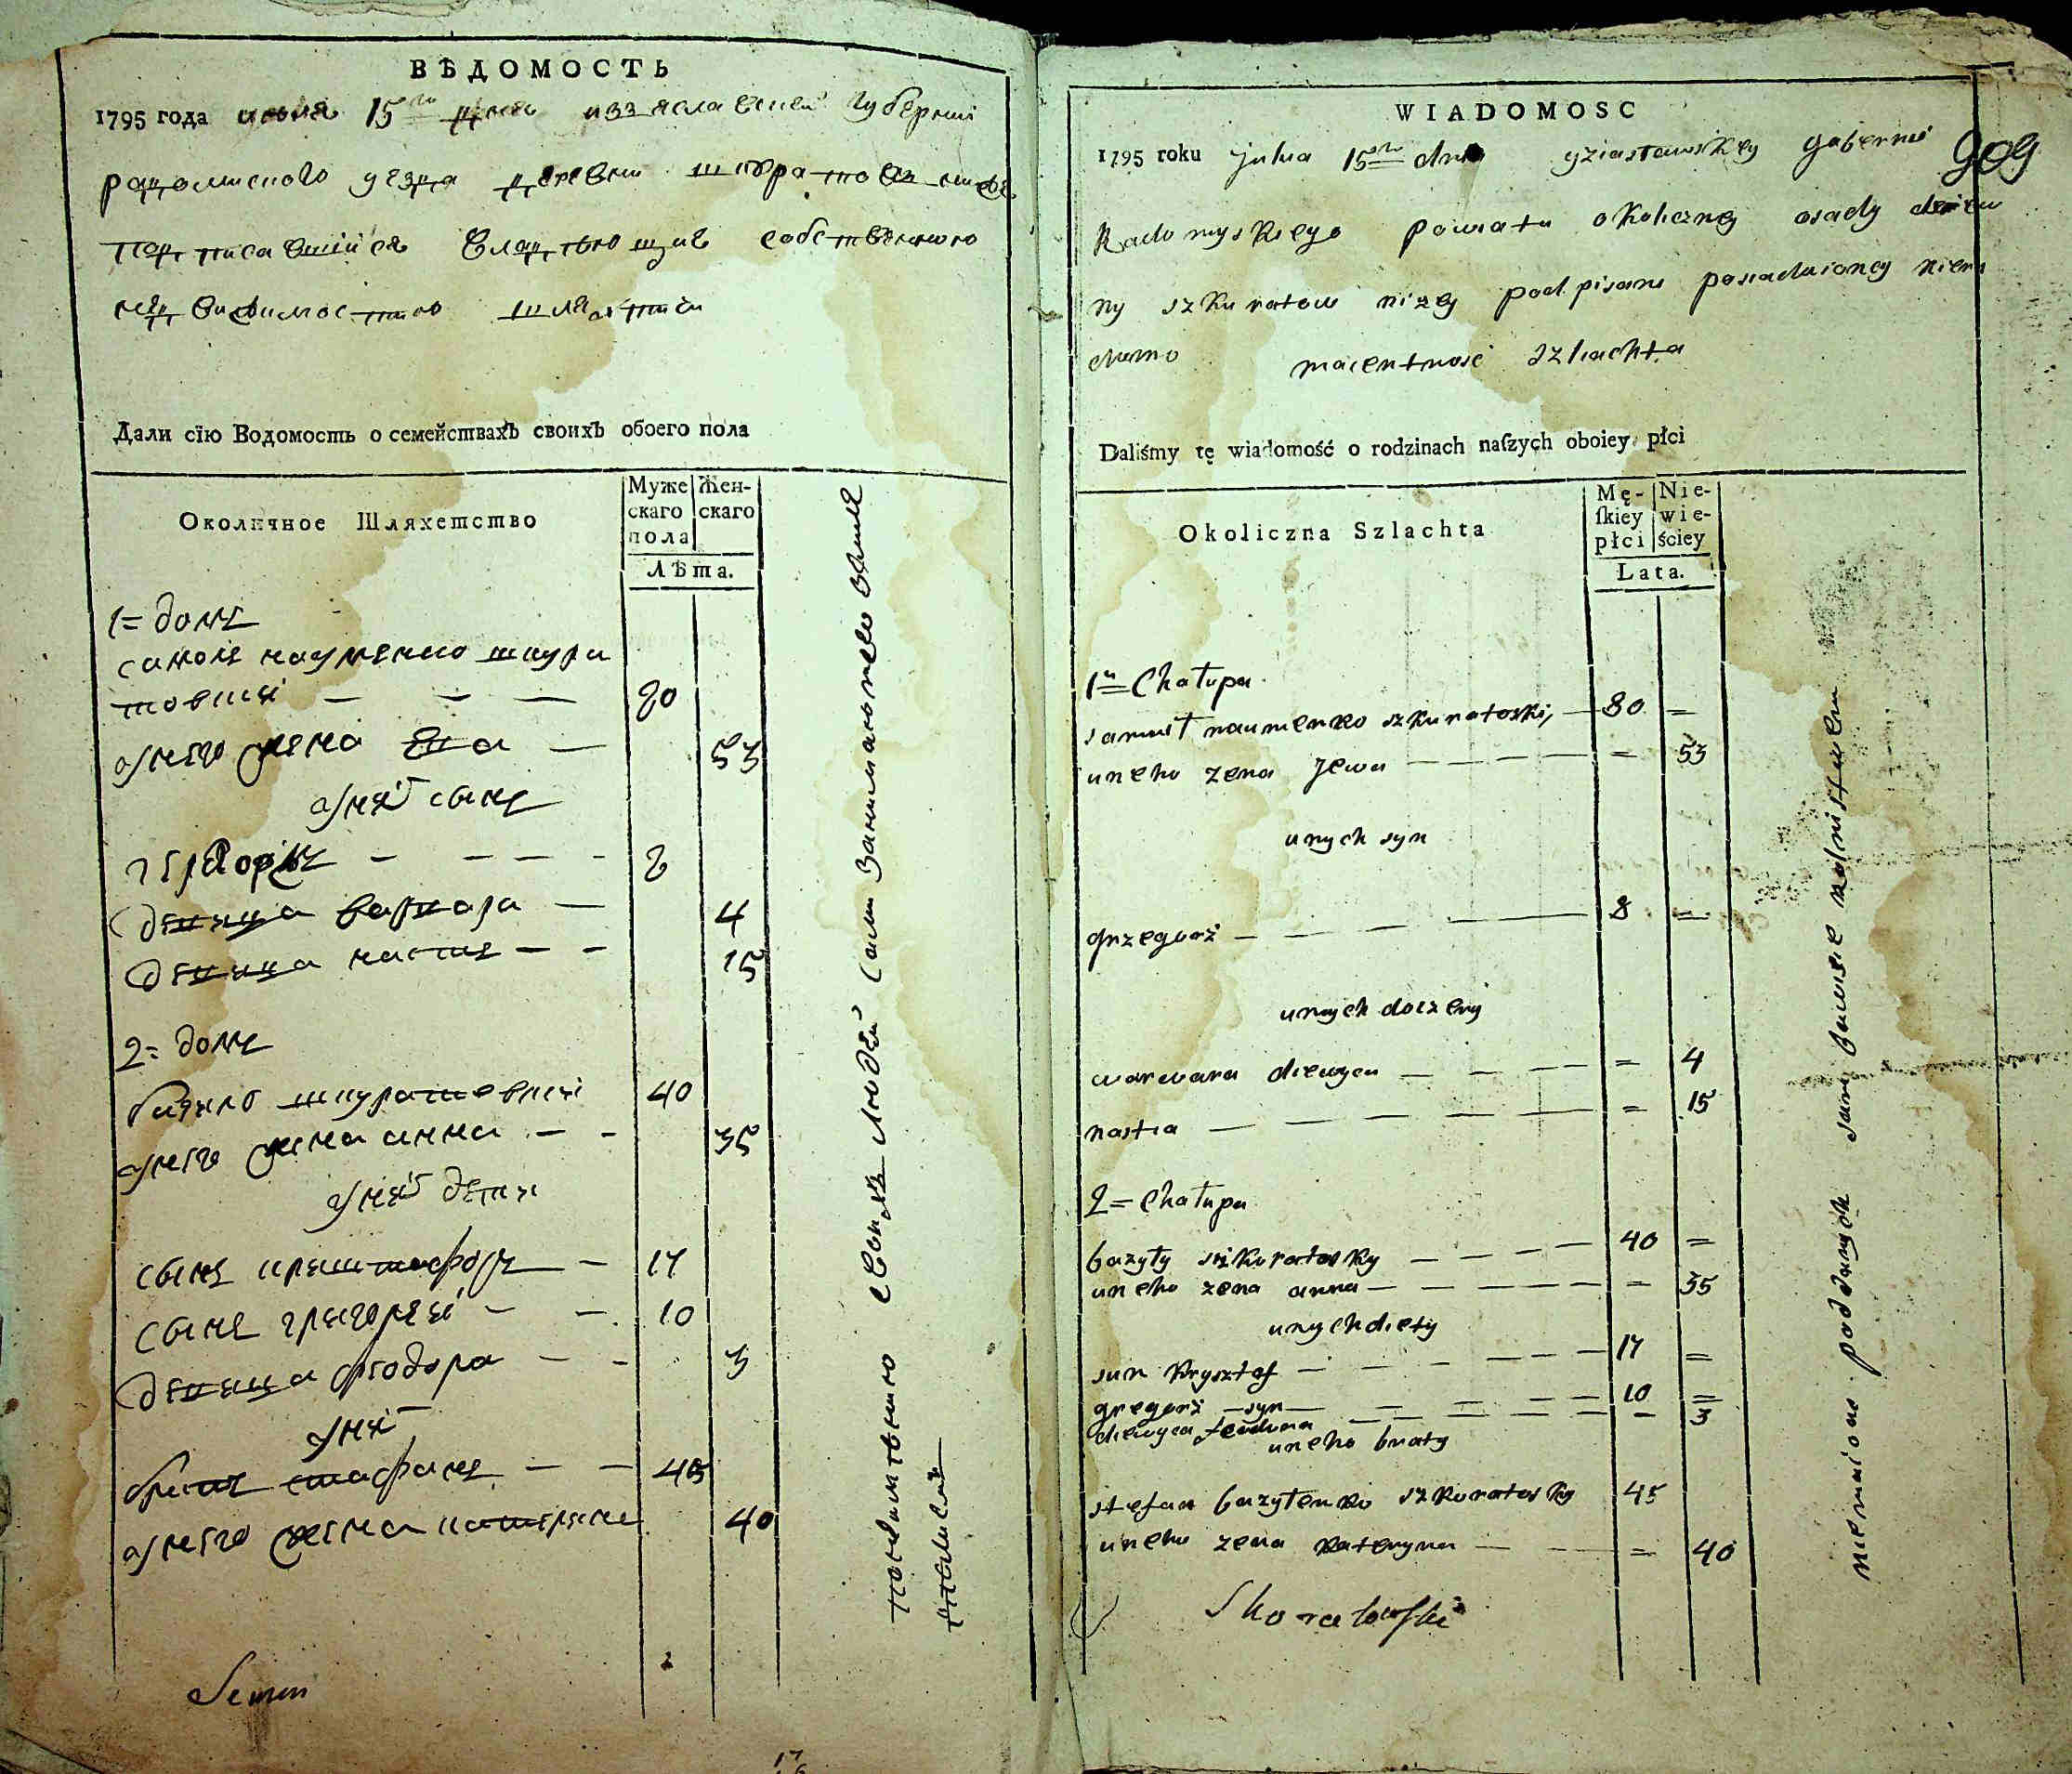 ВѢДОМОСТЬ
1795 года июля 15го дня Изяславской губернїи
радомиского уезда деревни шкуратовки
подписавшийся владѣющие собственною
недвижимостию шляхтичи
Дали сїю Водомость о семействахъ своихъ обоего пола
Околичное Шляхетство
Муже
скаго
пола
Жен-
скаго
Лѣта.
1= домъ
самоил науменко шкура
товский — — — 80
унего жена Ева — 53
уних сынъ
григорий — — — — 8
девица варвара — 4
девица настя — — 15
2= домъ
базило шкуратовский 40
унего жена анна — — 35
уних дети
сынъ криштофоръ — 14
сынъ григорей — — 10
девица феодора — — 3
уних
братъ стефанъ — — 45
унего жена катерина 40
Semen
Сами занимаютъ
людей
своихъ
неимеют
17
WIADOMOSC
909
1795 roku julia 15go dnia yziasławskiey gubernii
Radomyskiego powiatu okoliczney osady derew
ny szkuratow nizey podpisani posiadaioncy nieru
chomo maientnosc szlachta
Daliśmy tę wiadomość o rodzinach naſzych oboiey płci
Okoliczna Szlachta
Mę-
ſkiey
płci
Nie-
wie-
ściey
Lata.
1= Chałupa
samuł naumenko szkuratoski, — 80 =
uneho zena Jewa — — — — = 53
unych syn
grzegorż — — — — — 8 =
unych doczery
warwara diewyca — — — = 4
nastia — — — — — = 15
2= Chałupa
bazyły szkuratosky — — — — 40 =
uneho zena anna — — — — — = 35
unych diety
sun krysztof — — — — — — 14 =
gregorż — syn — — — — — 10 =
diewyca feudora — — — — — — 3
uneho braty
stefan bazyłenko szkoratosky 45
uneho zena kateryna — — = 40
Skoratowſki